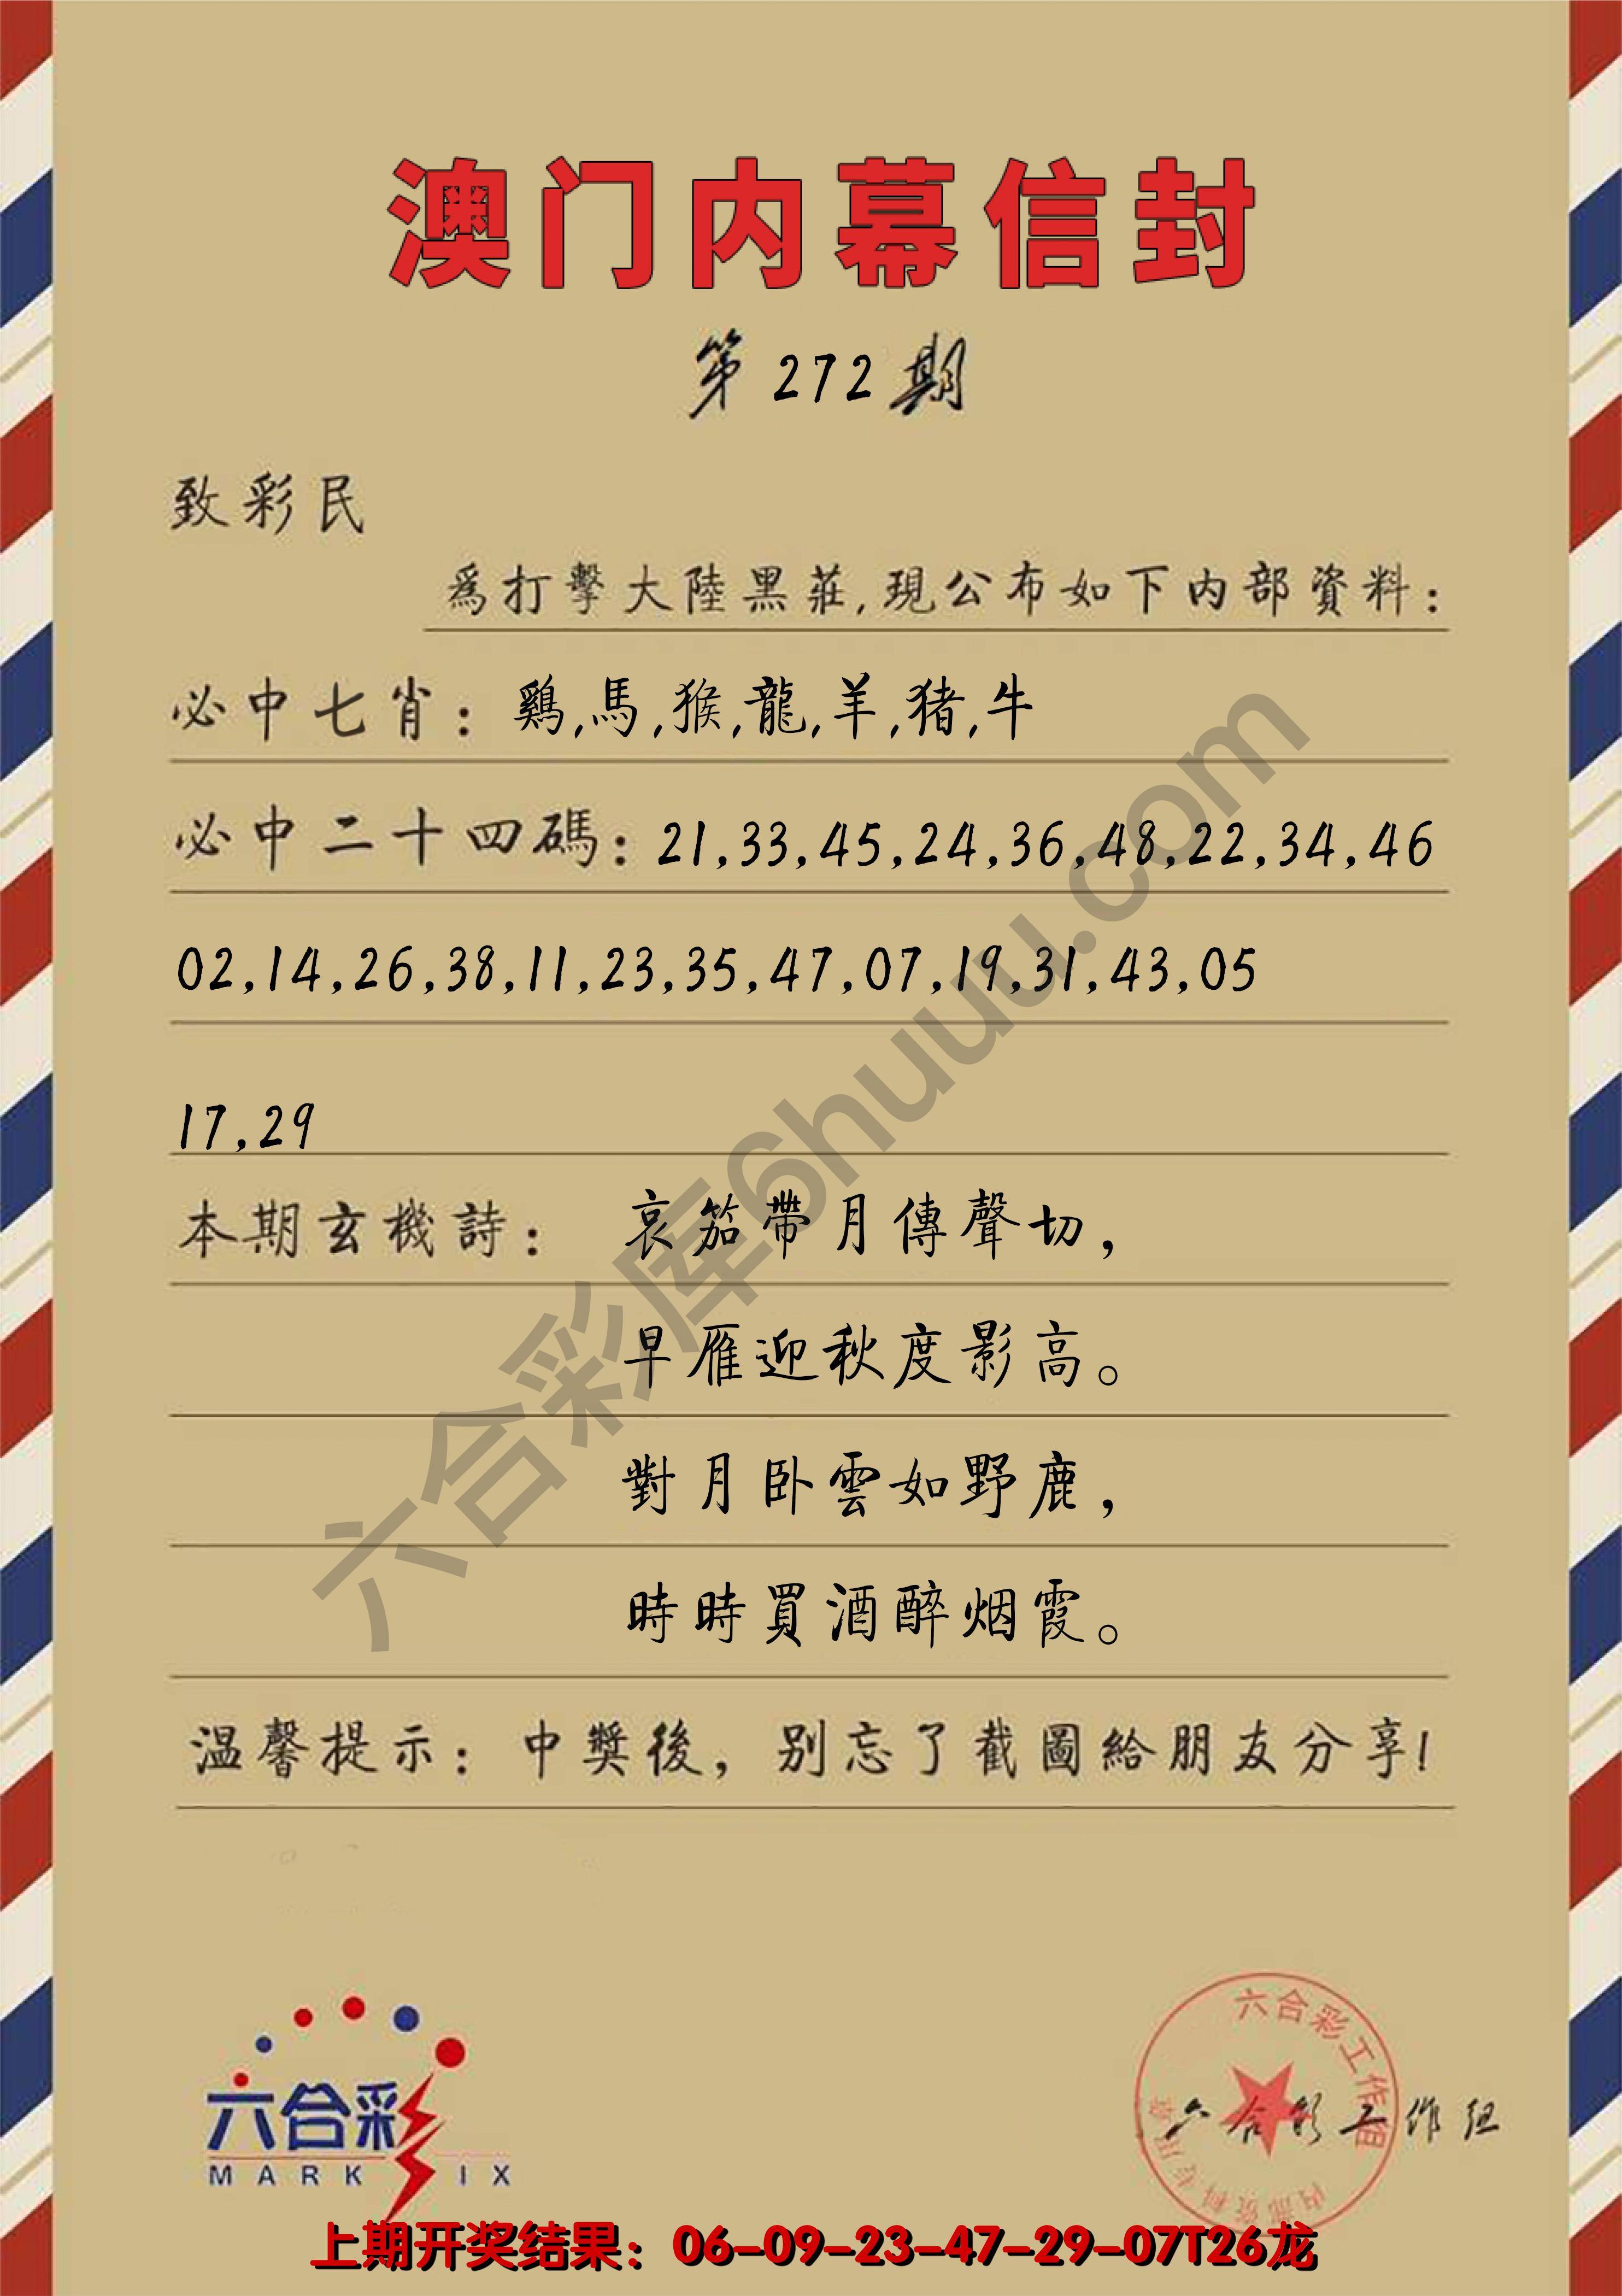 澳门内幕信封
第272期
致彩民
為打擊大陸黑莊,現公布如下内部資料:
必中七肖:鷄,馬,猴,龍,羊,猪,牛
必中二十四碼:21,33,45,24,36,48,22,34,46
02,14,26,38,11,23,35,47,07,19,31,43,05
17,29
本期玄機詩:哀笳帶月傳聲切,
早雁迎秋度影高。
對月卧雲如野鹿,
時時買酒醉烟霞。
温馨提示:中獎後,别忘了截圖給朋友分享!
六合彩库6huuu.com
六合彩
MARK IX
六合彩工作组
内部资料专用章
六合彩工作组
上期开奖结果:06-09-23-47-29-07T26龙